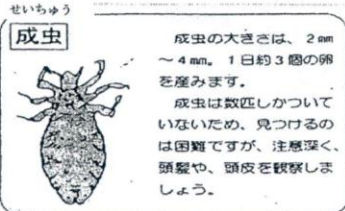 せいちゅう
成虫
成虫の大きさは、2mm
～4mm。1日約3個の卵
を産みます。
成虫は数匹しかついて
いないため、見つけるの
は困難ですが、注意深く、
頭髪や、頭皮を観察しま
しょう。